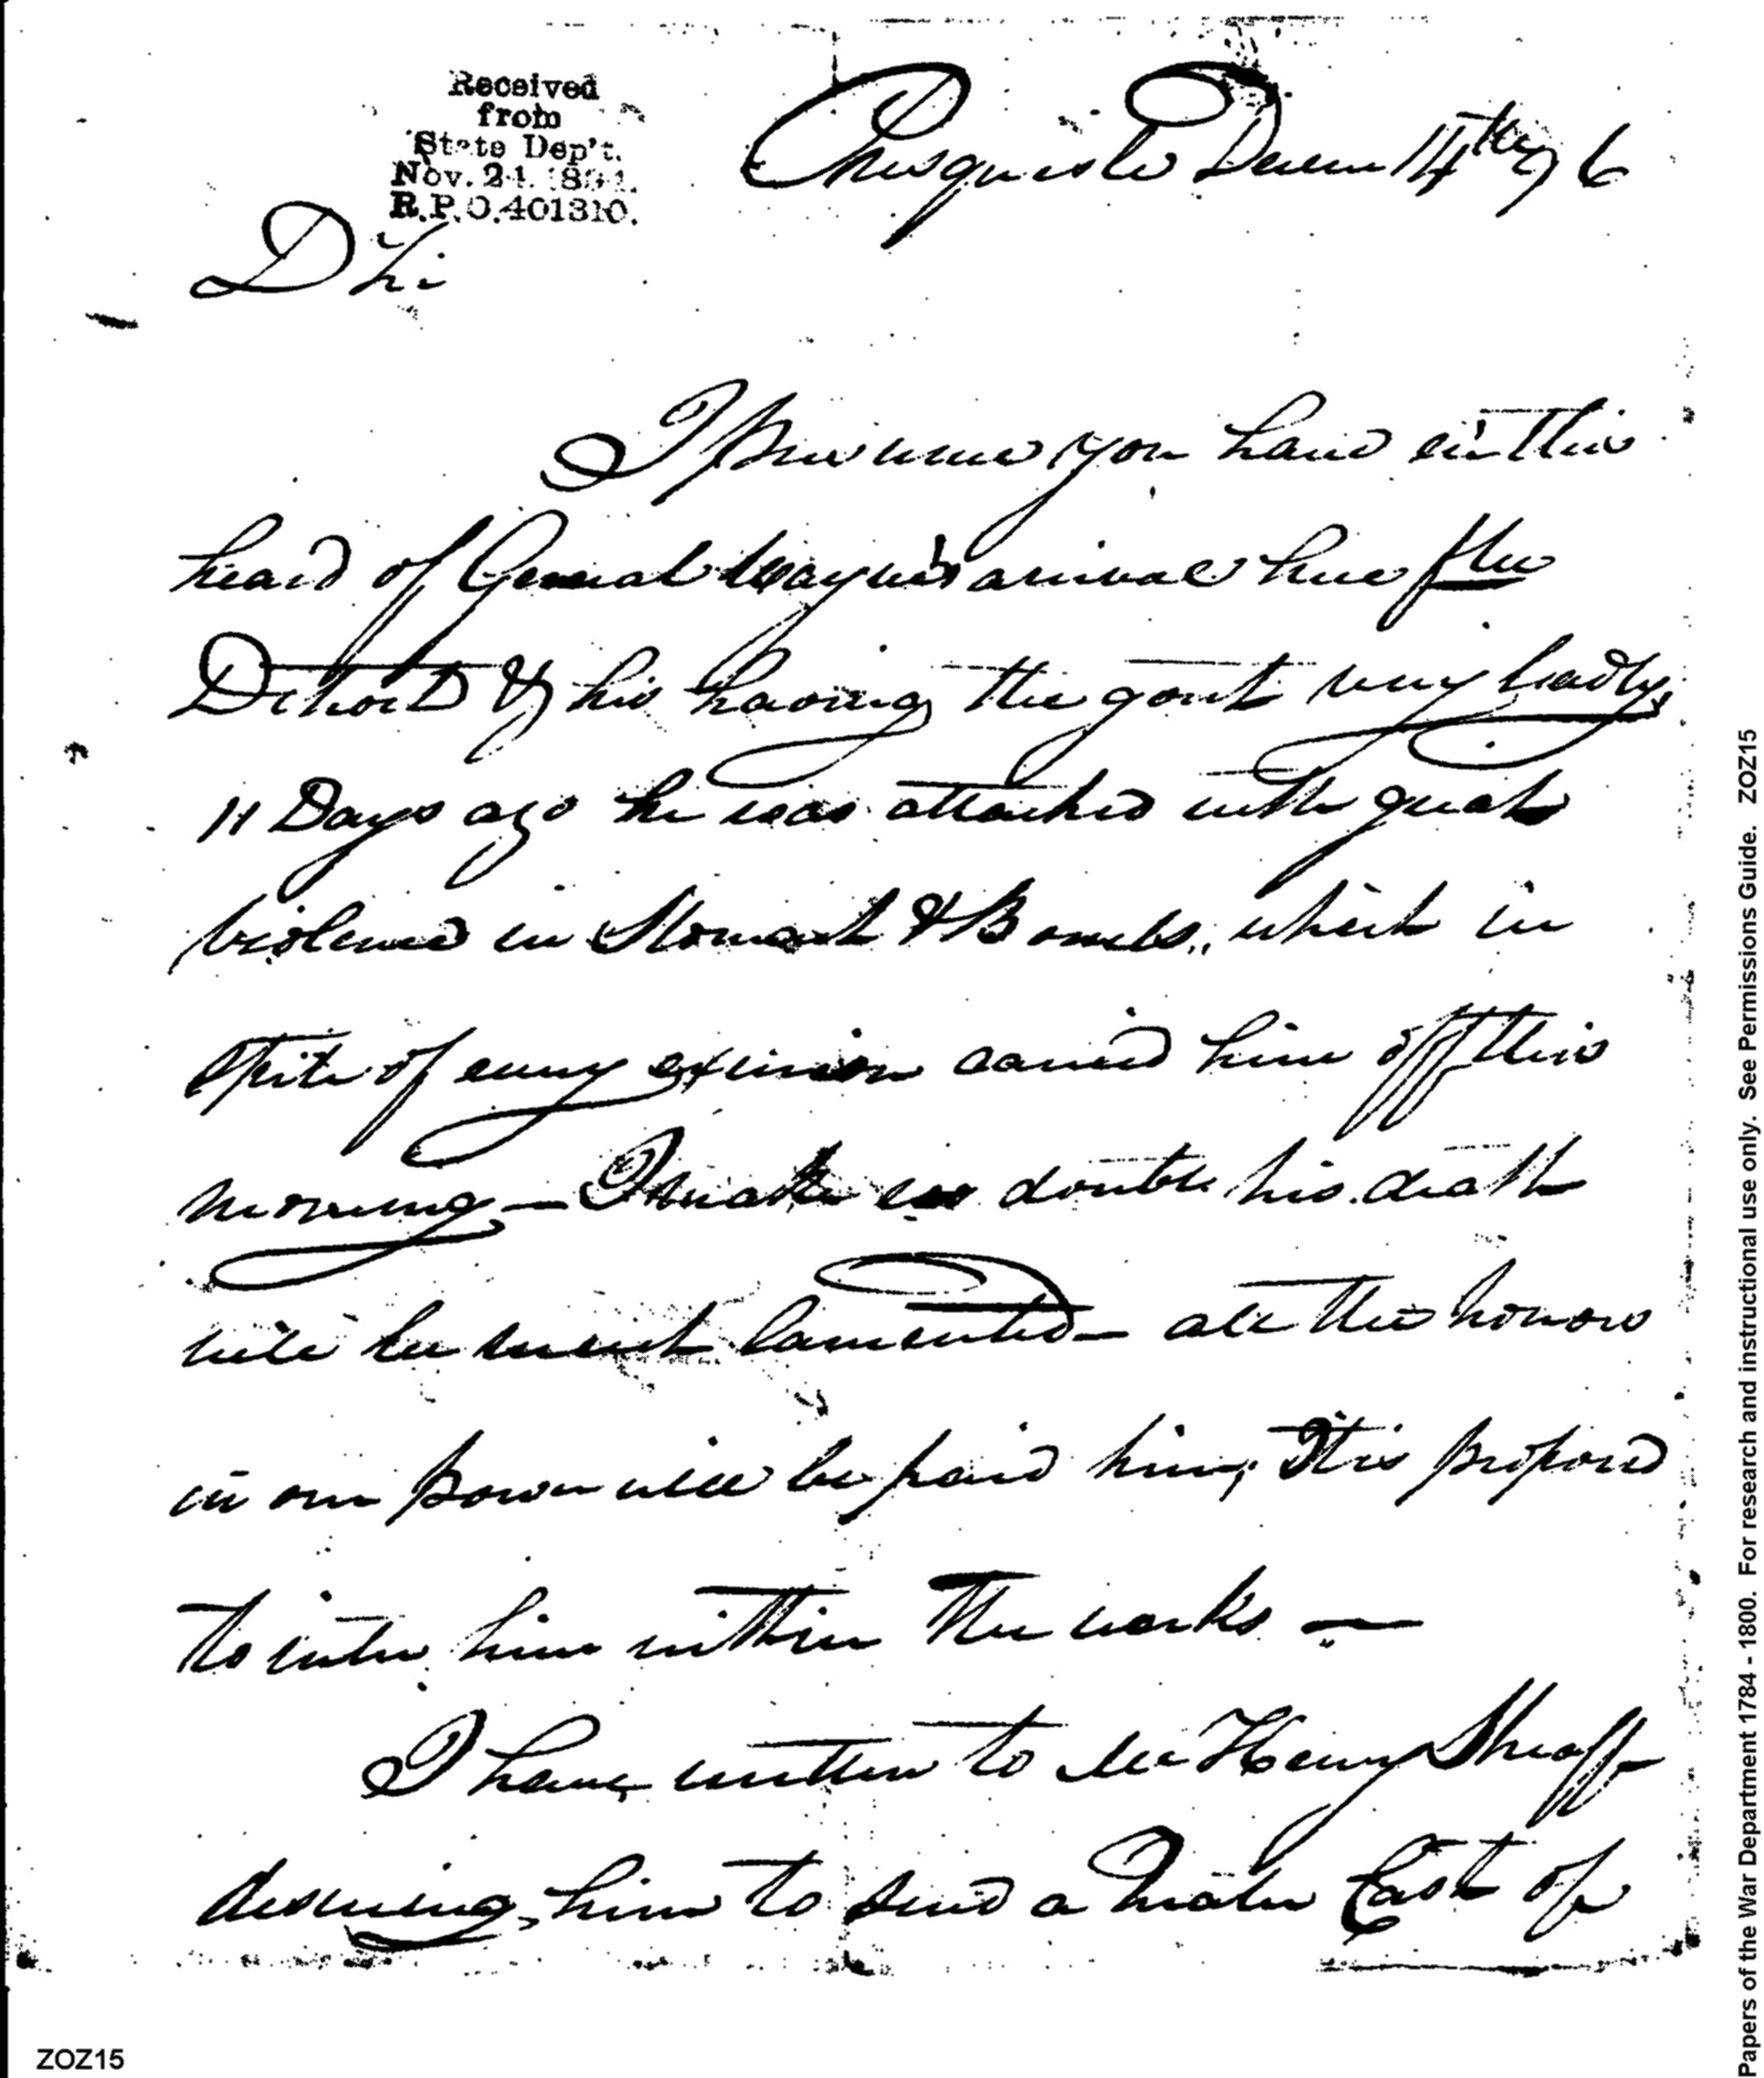 Received
from
State Dep't.
Nov. 21. 1894.
R.P.O. 401310.
Presquisle Decem 14th 96
D Sir
I presume you have
heard of General Wayne's arrival here from
Detroit & his having the gout very badly,
11 Days ago he was attacked with great
violence in Stomach & Bowels, which in
spite of every exertion carried him off this
morning — I make no doubt his death
will be much lamented — all the honors
in our power will be paid him, It is proposed
to inter him within the works —
I have written to Mr Henry Sheaff
desiring him to send a Cask of
ZOZ15
Papers of the War Department 1784 - 1800. For research and instructional use only. See Permissions Guide. ZOZ15